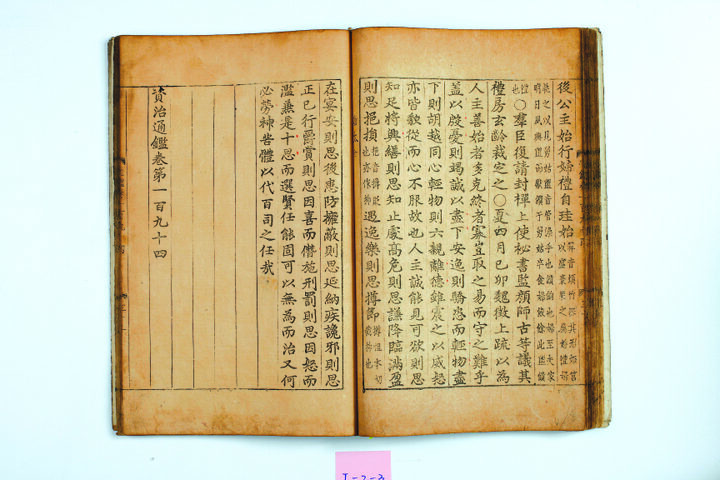 後公主始行婦禮自珪始
明日夙興盥而饋饋于舅姑卒食婦餕餘此盥饋
禮也○羣臣復請封禪上使秘書監顏師古等議其
禮房玄齡裁定之○夏四月己卯魏徵上疏以為
人主善始者多克終者寡豈取之易而守之難乎
蓋以殷憂則竭誠以盡下安逸則驕恣而輕物盡
下則胡越同心輕物則六親離德雖震之以威怒
亦皆貌從而心不服故也人主誠能見可欲則思
知足將興繕則思知止處高危則思謙降臨滿盈
則思挹損遇逸樂則思撙節
在宴安則思後患防擁蔽則思延納疾讒邪則思
正己行爵賞則思因喜而僭施刑罰則思因怒而
濫兼是十思而選賢任能固可以無為而治又何
必勞神苦體以代百司之任哉
資治通鑑卷第一百九十四
I-2-3